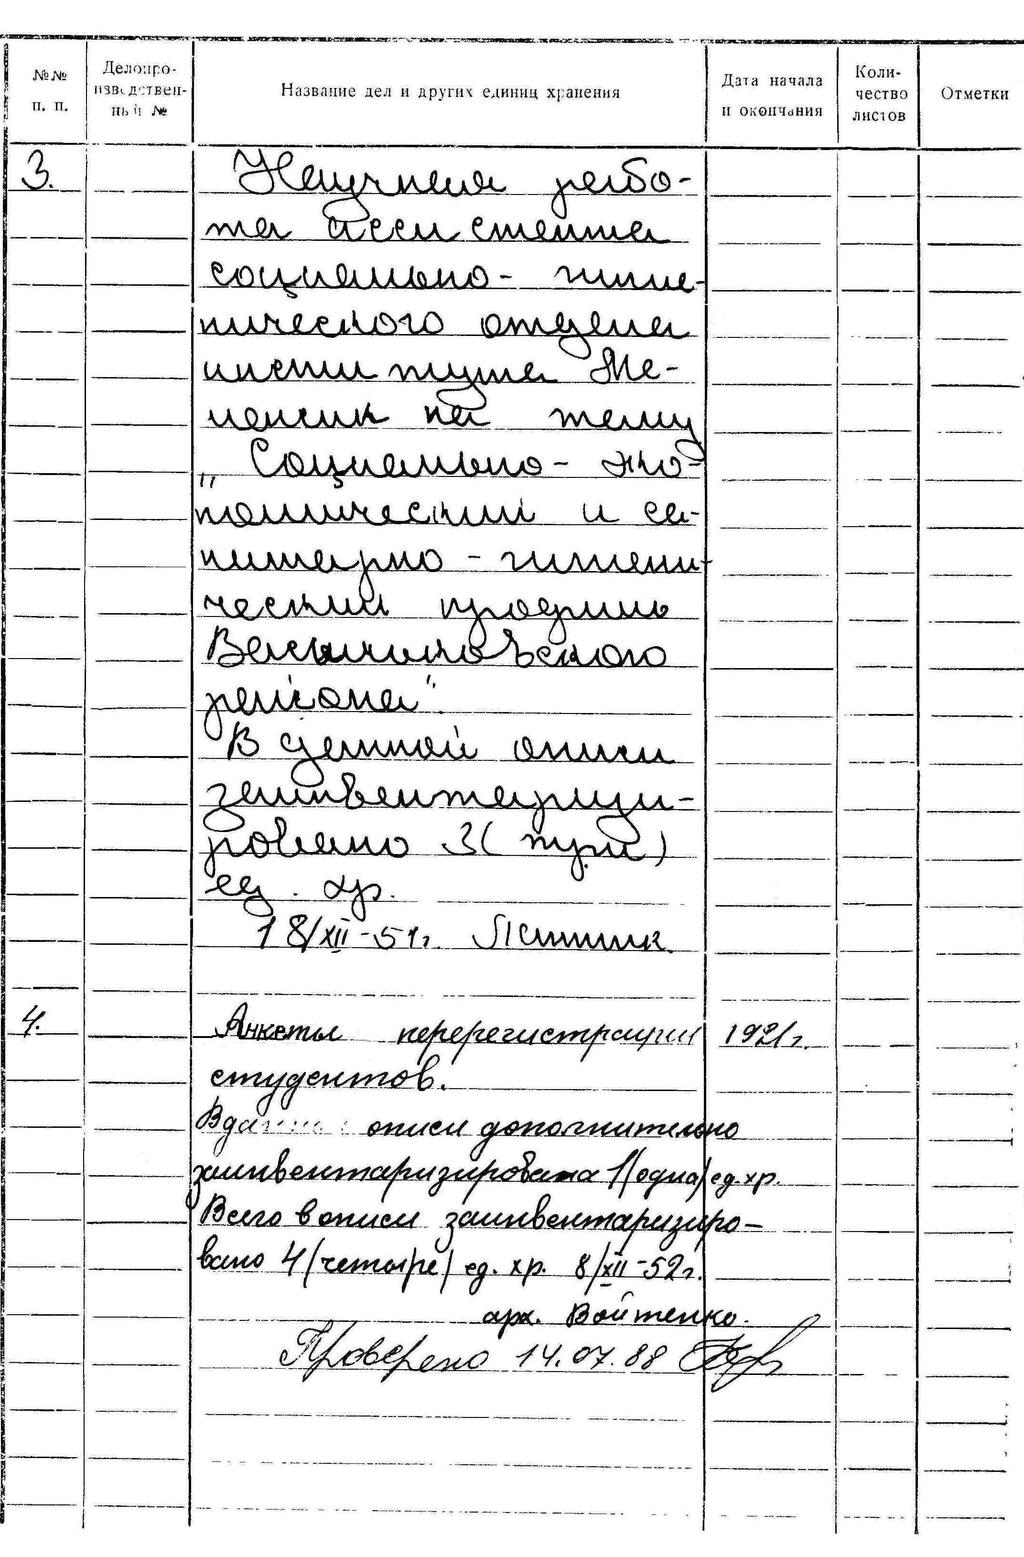 №№ п. п.
Делопроизводственный №
Название дел и других единиц хранения
Дата начала и окончания
Количество листов
Отметки
3.
Научная рабо-
та ассистента
социально-гигие-
нического отдела
института Ме-
на тему
"Социально-эко-
номический и са-
нитарно-гигиени-
ческий профиль
района".
В данной описи
заинвентаризи-
ровано 3 (три)
ед. хр.
18/XII-51г.
4.
Анкеты перерегистрации 1921г.
студентов.
В данной описи дополнительно
заинвентаризирована 1 (одна) ед. хр.
Всего в описи заинвентаризиро-
вано 4 (четыре) ед. хр. 8/XII-52г.
арх. Войтенко.
Проверено 14.07.88